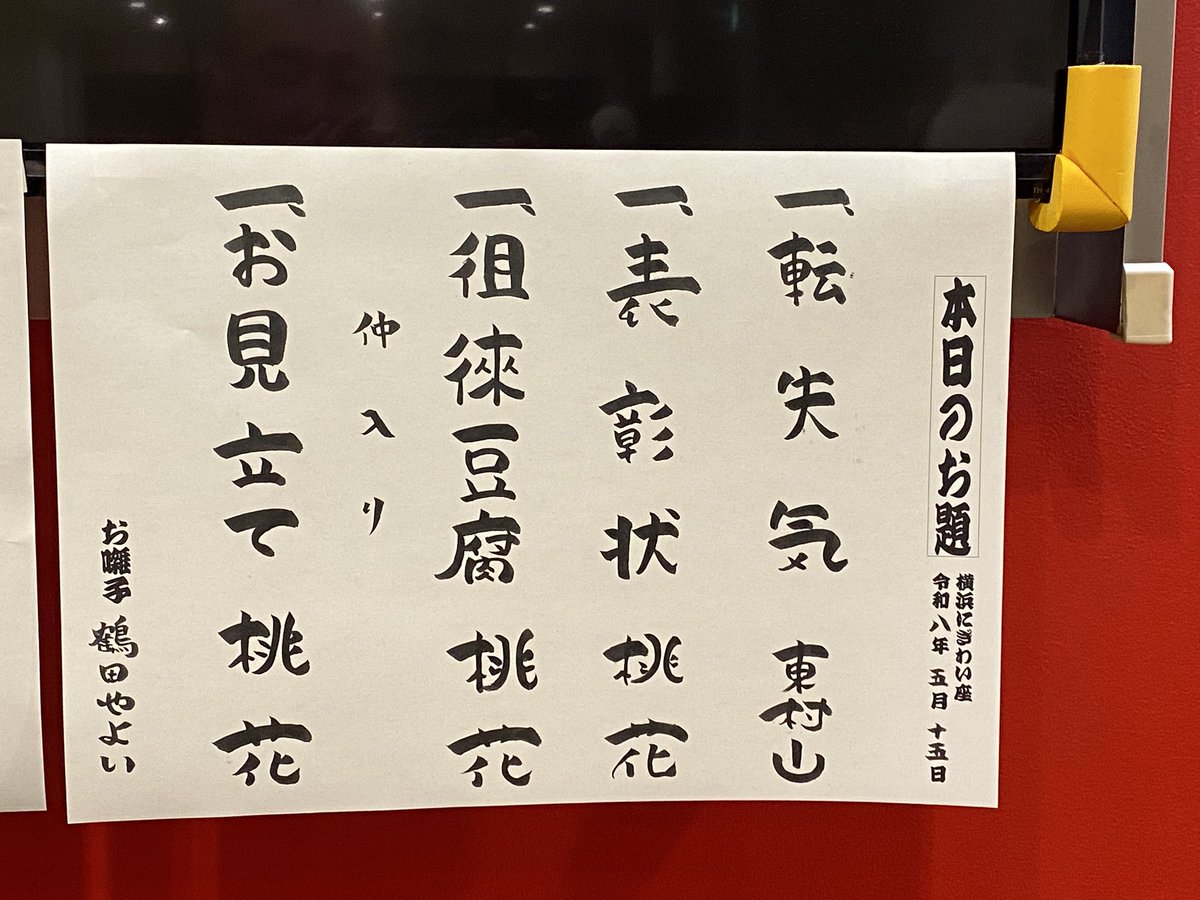 本日のお題
横浜にぎわい座
令和八年 五月 十五日
一、転失気 東村山
一、表彰状 桃花
一、徂徠豆腐 桃花
仲入り
一、お見立て 桃花
お囃子 鶴田やよい
TH-4